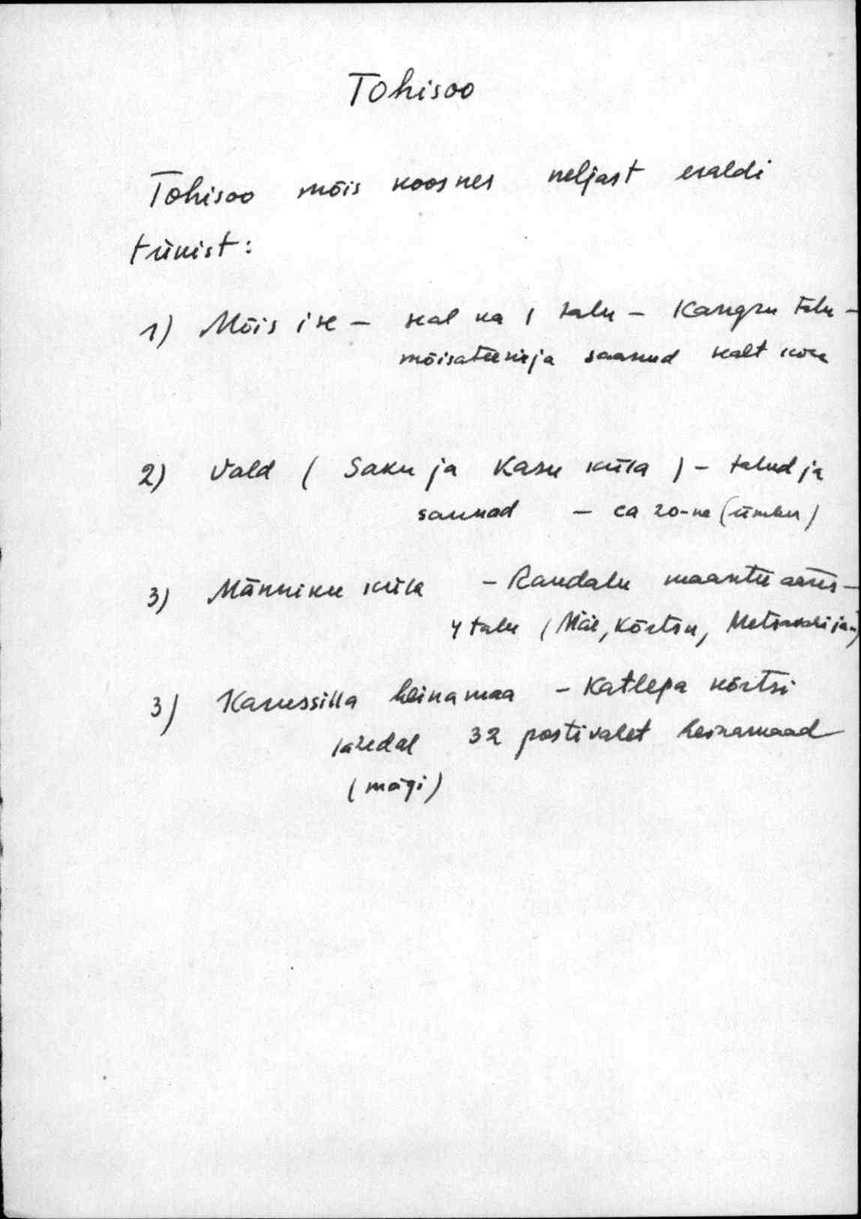 Tohisoo
Tohisoo mõis koosnes neljast eraldi
tükist:
1) Mõis ise – seal ka 1 talu – Kangru talu –
mõisateenija saanud sealt koha
2) Vald ( Saku ja Kasu küla ) – talud ja
saunad – ca 20-ne (ümber)
3) Männiku küla – Raudalu maantee ääres –
4 talu (Mäe, Kõrtsu,
3) Karussilla heinamaa – Katlepa kõrtsi
lähedal 32 postivahet heinamaad
(mägi)